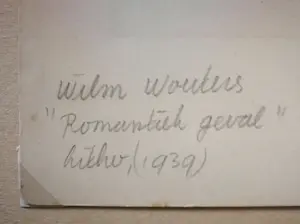 Wilm Wouters
"Romantiek geval"
litho, (1939)